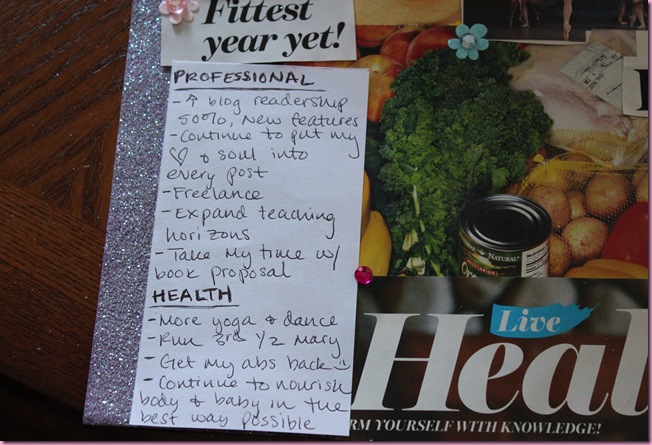 Fittest
year yet!
PROFESSIONAL
- ↑ blog readership
50%, New features
- Continue to put my
♡ & soul into
every post
- Freelance
- Expand teaching
horizons
- Take my time w/
book proposal
HEALTH
- More yoga & dance
- Run 3rd 1/2 Mary
- Get my abs back
- Continue to nourish
body & baby in the
best way possible
NATURAL
VEGETARIAN
Live
Heal
RM YOURSELF WITH KNOWLEDGE!